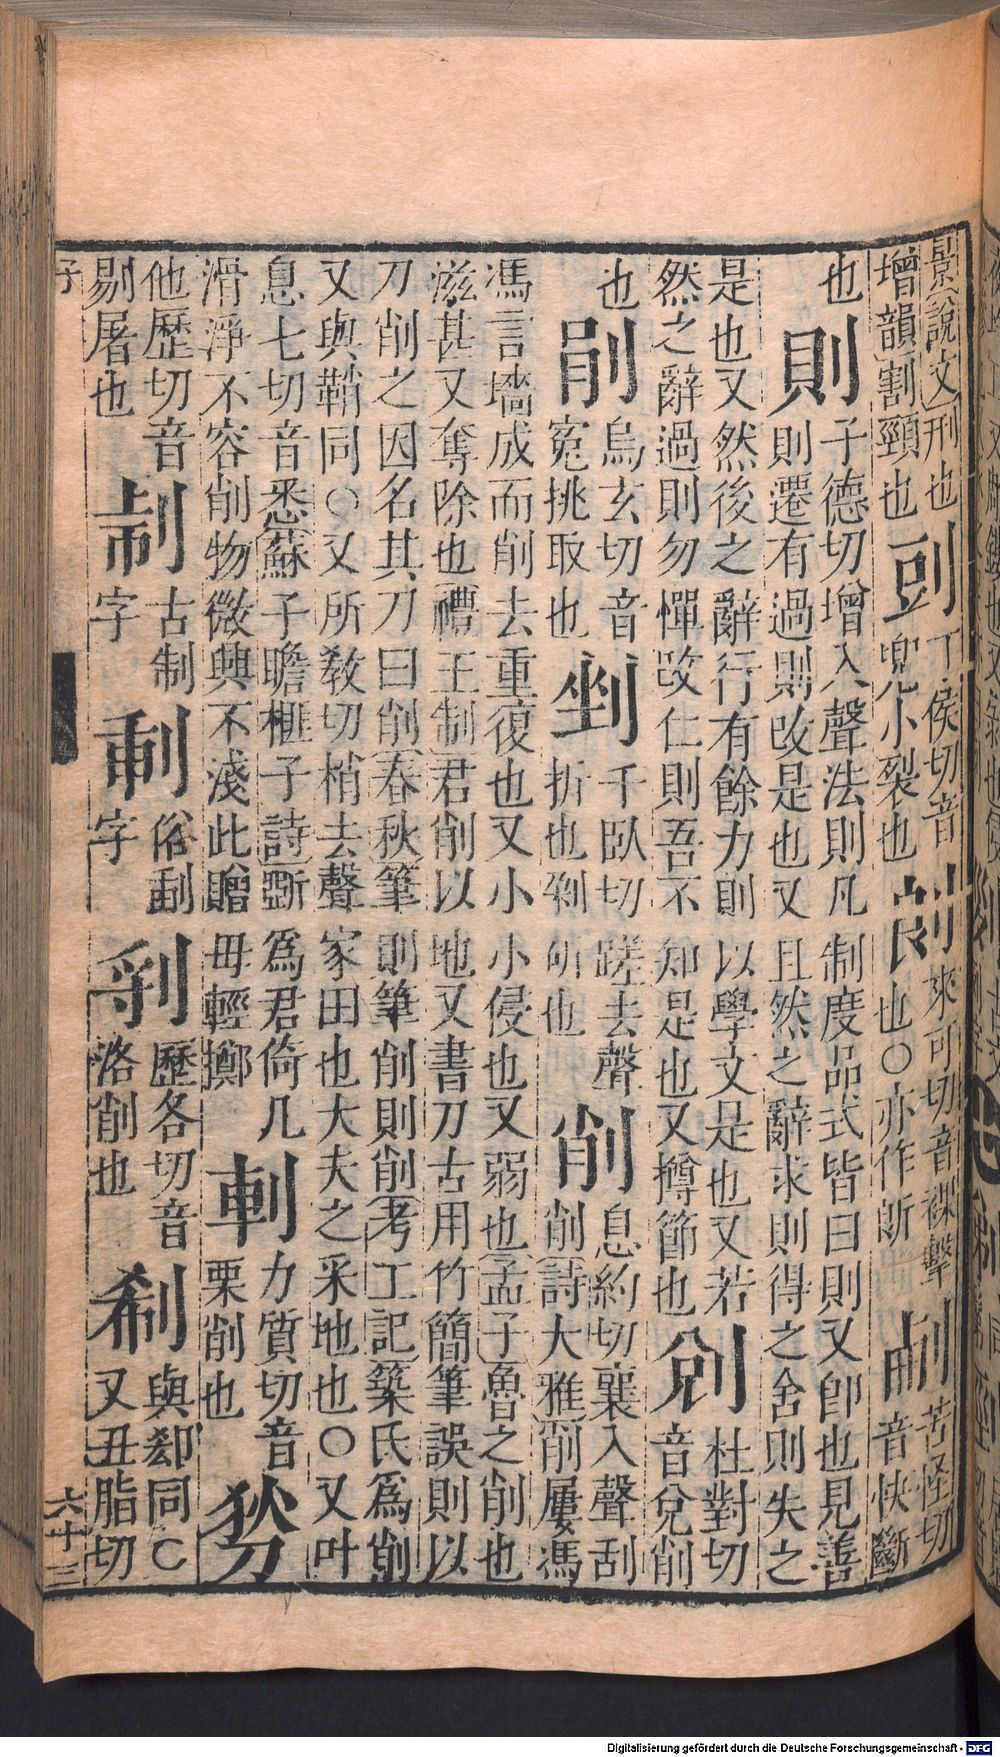 景說文刑也增韻割頸也剅丁侯切音兜小裂也來可切音裸擊也○亦作苦怪切音快斷
也則子德切增入聲法則凡制度品式皆曰則又卽也見善則遷有過則改是也又且然之辭求則得之舍則失之
是也又然後之辭行有餘力則以學文是也又若然之辭過則勿憚改仁則吾不知是也又撙節也杜對切音兌削
也剈烏玄切音冤挑取也剉千臥切蹉去聲折也剁斫也削息約切襄入聲刮削詩大雅削屢馮
馮言墻成而削去重復也又小小侵也又弱也孟子魯之削也滋甚又奪除也禮王制君削以地又書刀古用竹簡筆誤則以
刀削之因名其刀曰削春秋筆則筆削則削考工記築氏爲削又與鞘同○又所敎切梢去聲家田也大夫之采地也○又叶
息七切音悉蘇子瞻榧子詩斲爲君倚几滑淨不容削物微興不淺此贈毋輕擲力質切音栗削也
他歷切音剔屠也古制字俗字歷各切音洛削也與同○又丑脂切
子
六十三
Digitalisierung gefördert durch die Deutsche Forschungsgemeinschaft - DFG